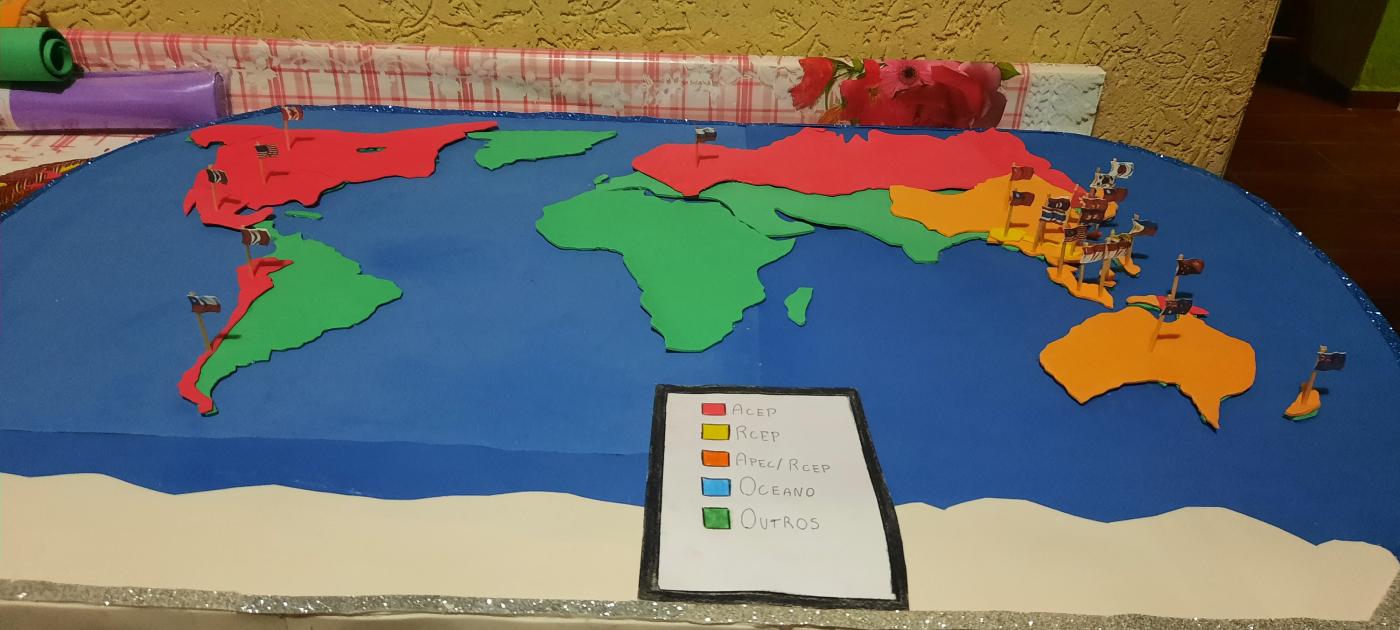 ACEP
RCEP
APEC/RCEP
OCEANO
OUTROS